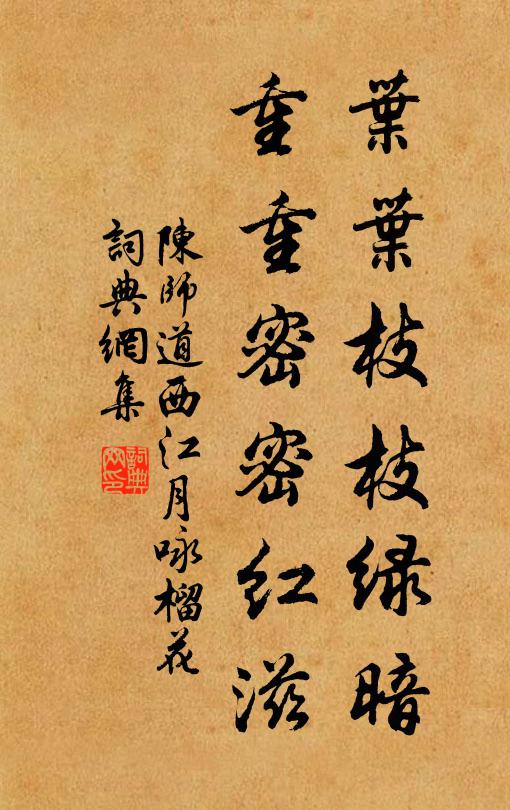 葉葉枝枝绿暗
重重密密红滋
陳師道西江月咏榴花
詞典網集
詞典网印